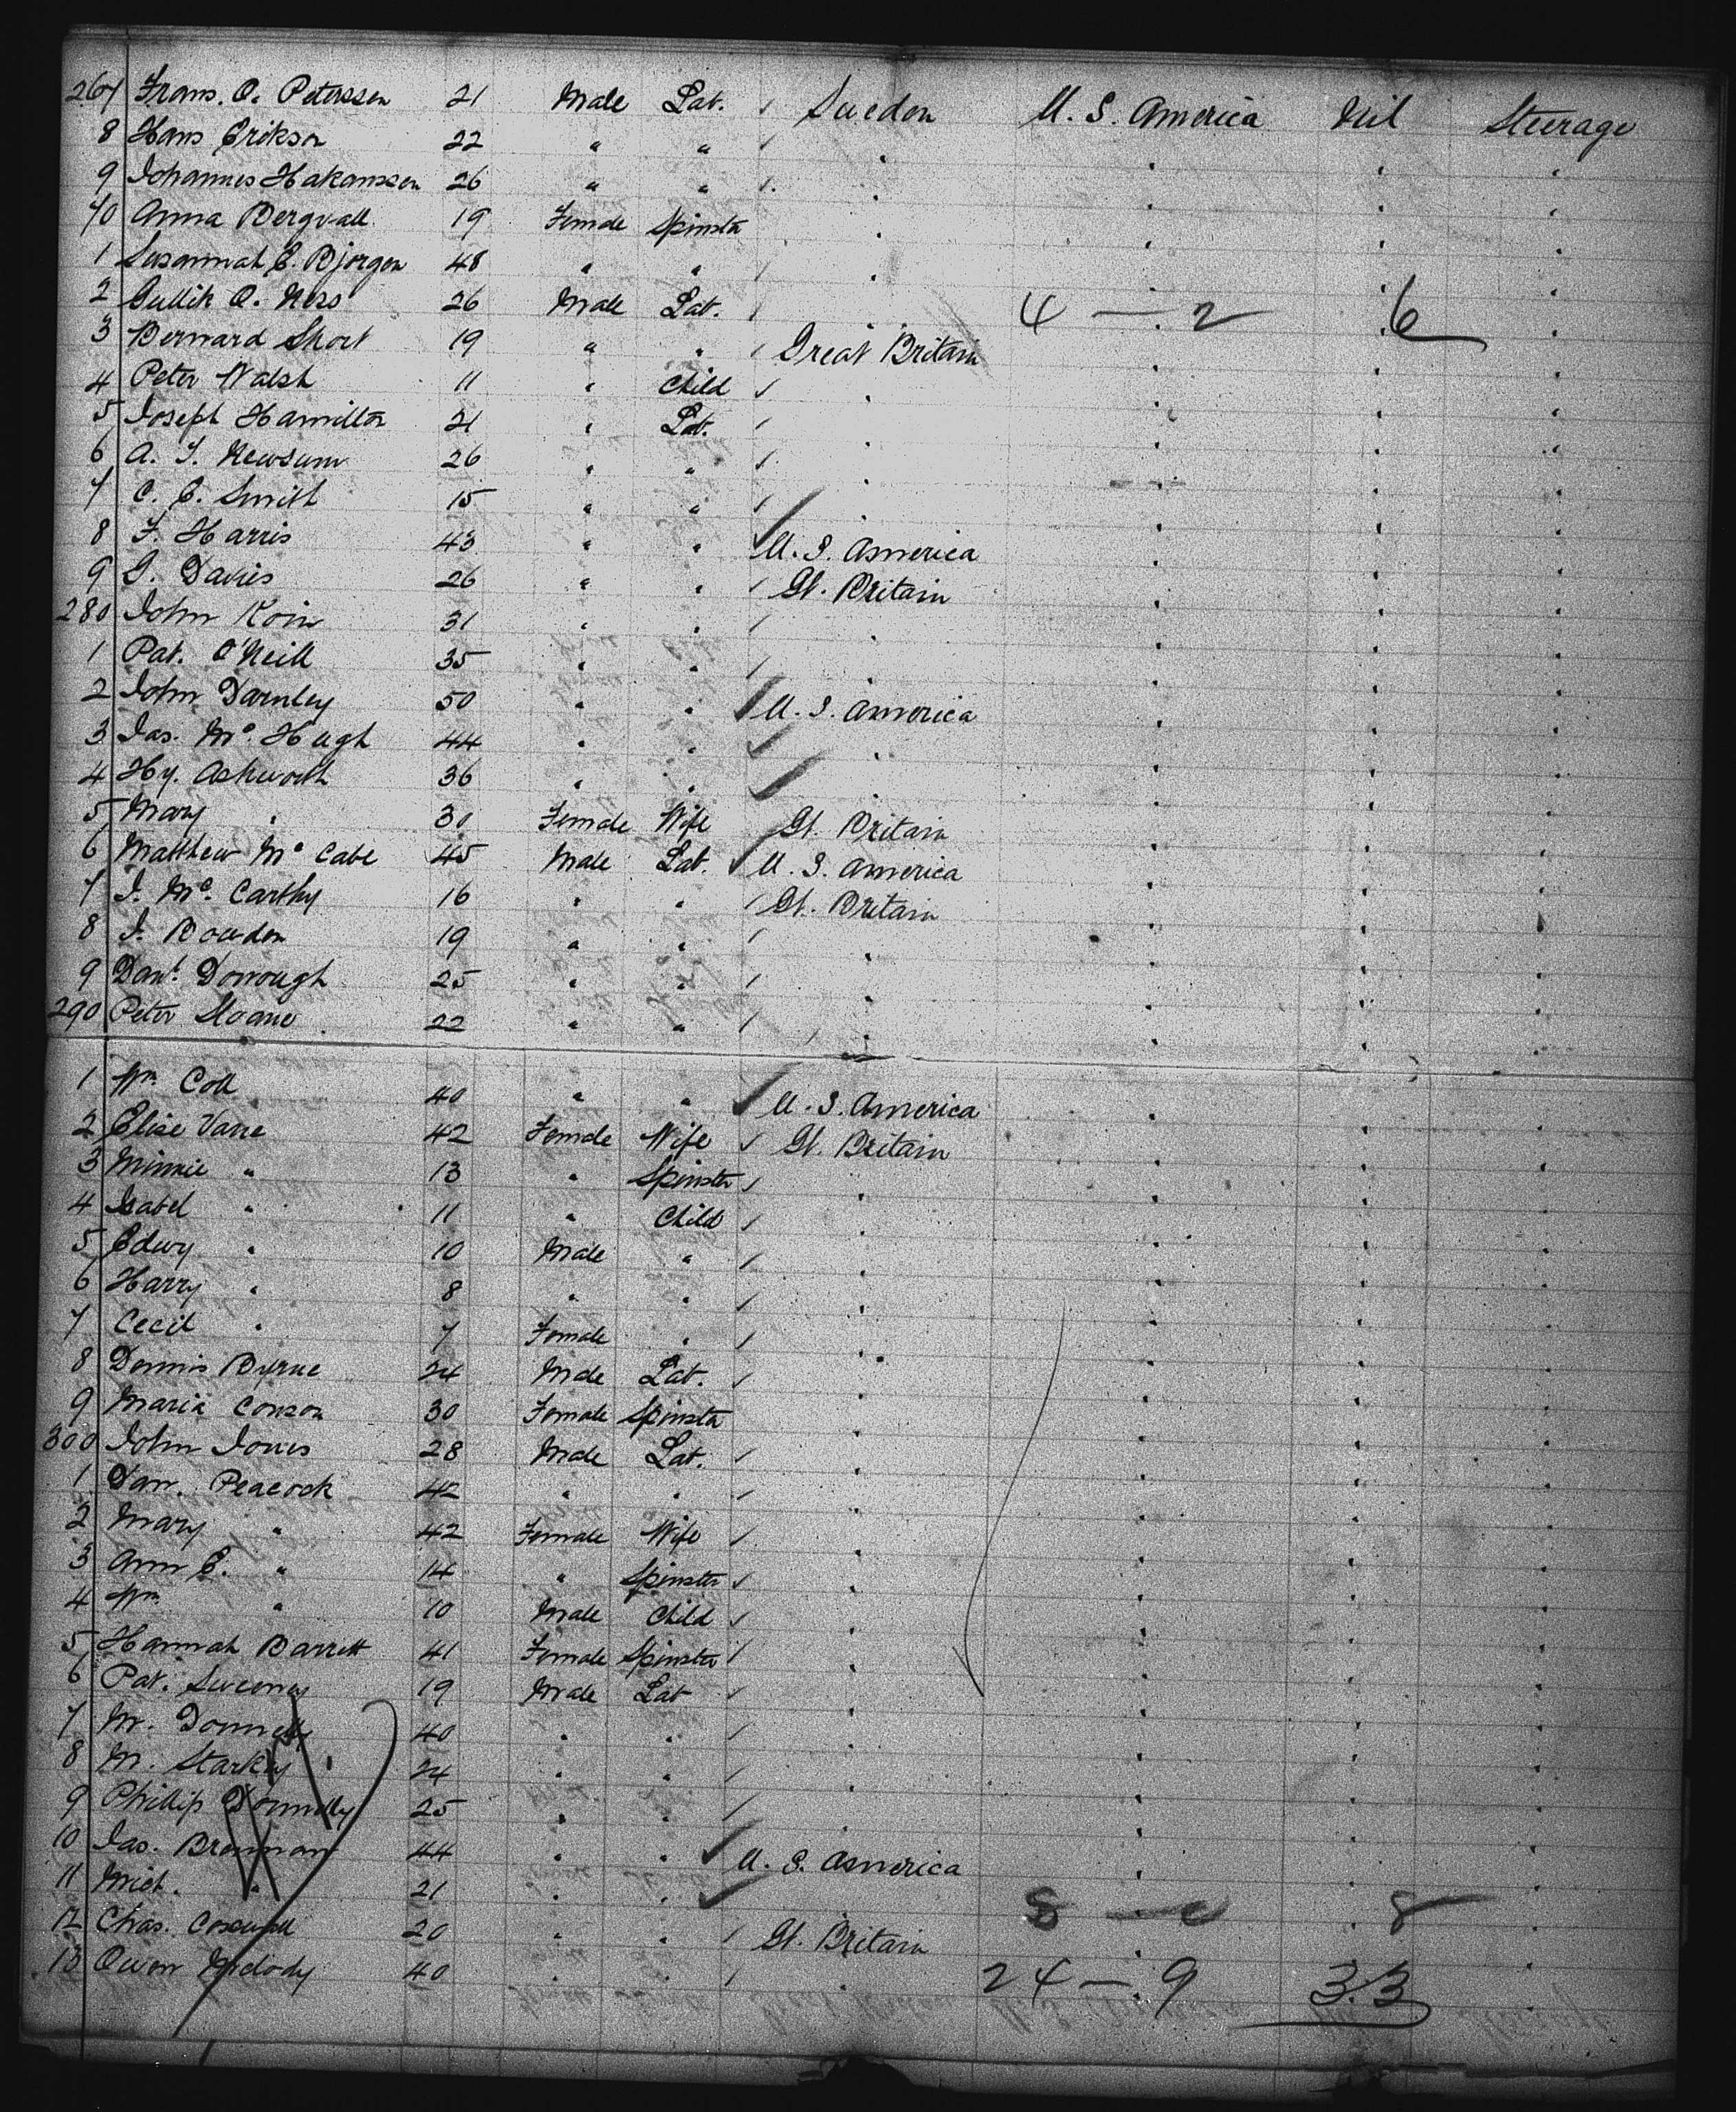 267 Frans. O. Peterssen 21 Male Lab. / Sweden U. S. America Nil Steerage
8 Hans Erikson 22 " " / " " " "
9 Johannes Hakanssen 26 " " / " " " "
70 Anna Bergvall 19 Female Spinstr " " " "
1 Susannah E. Bjorgen 48 " " / " " " "
2 Gullik O. Ness 26 Male Lab. / " 4 — 2 6 "
3 Bernard Short 19 " " / Great Britain " " "
4 Peter Walsh 11 " Child / " " " "
5 Joseph Hamilton 21 " Lab. / " " " "
6 A. J. Newsum 26 " " / " " " "
7 C. E. Smith 15 " " / " " " "
8 F. Harris 43 " " / U. S. America " " "
9 J. Davies 26 " " / Gt. Britain " " "
280 John 31 " " / " " " "
1 Pat. O'Neill 35 " " / " " " "
2 John Darnley 50 " " / U. S. America " " "
3 Jas. Mc. Hugh 44 " " / " " " "
4 Hy. Ashworth 36 " " / " " " "
5 Mary " 30 Female Wife / Gt. Britain " " "
6 Matthew Mc Cabe 45 Male Lab. / U. S. America " " "
7 J. Mc. Carthy 16 " " / Gt. Britain " " "
8 J. Bowden 19 " " / " " " "
9 Danl. Donough 25 " " / " " " "
290 Peter Sloane 22 " " / " " " "
1 Wm Coll 40 " " / U. S. America " " "
2 Elise Vane 42 Female Wife / Gt. Britain " " "
3 Minnie " 13 " Spinster / " " " "
4 Isabel " 11 " Child / " " " "
5 Edwy " 10 Male " / " " " "
6 Harry " 8 " " / " " " "
7 Cecil " 7 Female " / " " " "
8 Dennis Byrne 24 Male Lab. / " " " "
9 Maria Conson 30 Female Spinstr " " " "
300 John Jones 28 Male Lab. / " " " "
1 Dan. Peacock 42 " " / " " " "
2 Mary " 42 Female Wife / " " " "
3 Ann E. " 14 " Spinster / " " " "
4 Wm " 10 Male Child / " " " "
5 Hannah Barrett 41 Female Spinster / " " " "
6 Pat. Sweeney 19 Male Lab / " " " "
7 M. Donnelly 40 " " / " " " "
8 M. Starkey 24 " " / " " " "
9 Phillip Donnelly 25 " " / " " " "
10 Jas. Brennan 44 " " / U. S. America " " "
11 Mich. " 21 " " / 8 — 8 "
12 Chas. Coxwell 20 " " / Gt. Britain " " "
13 Owen Melody 40 " " / " 24 — 9 33 "